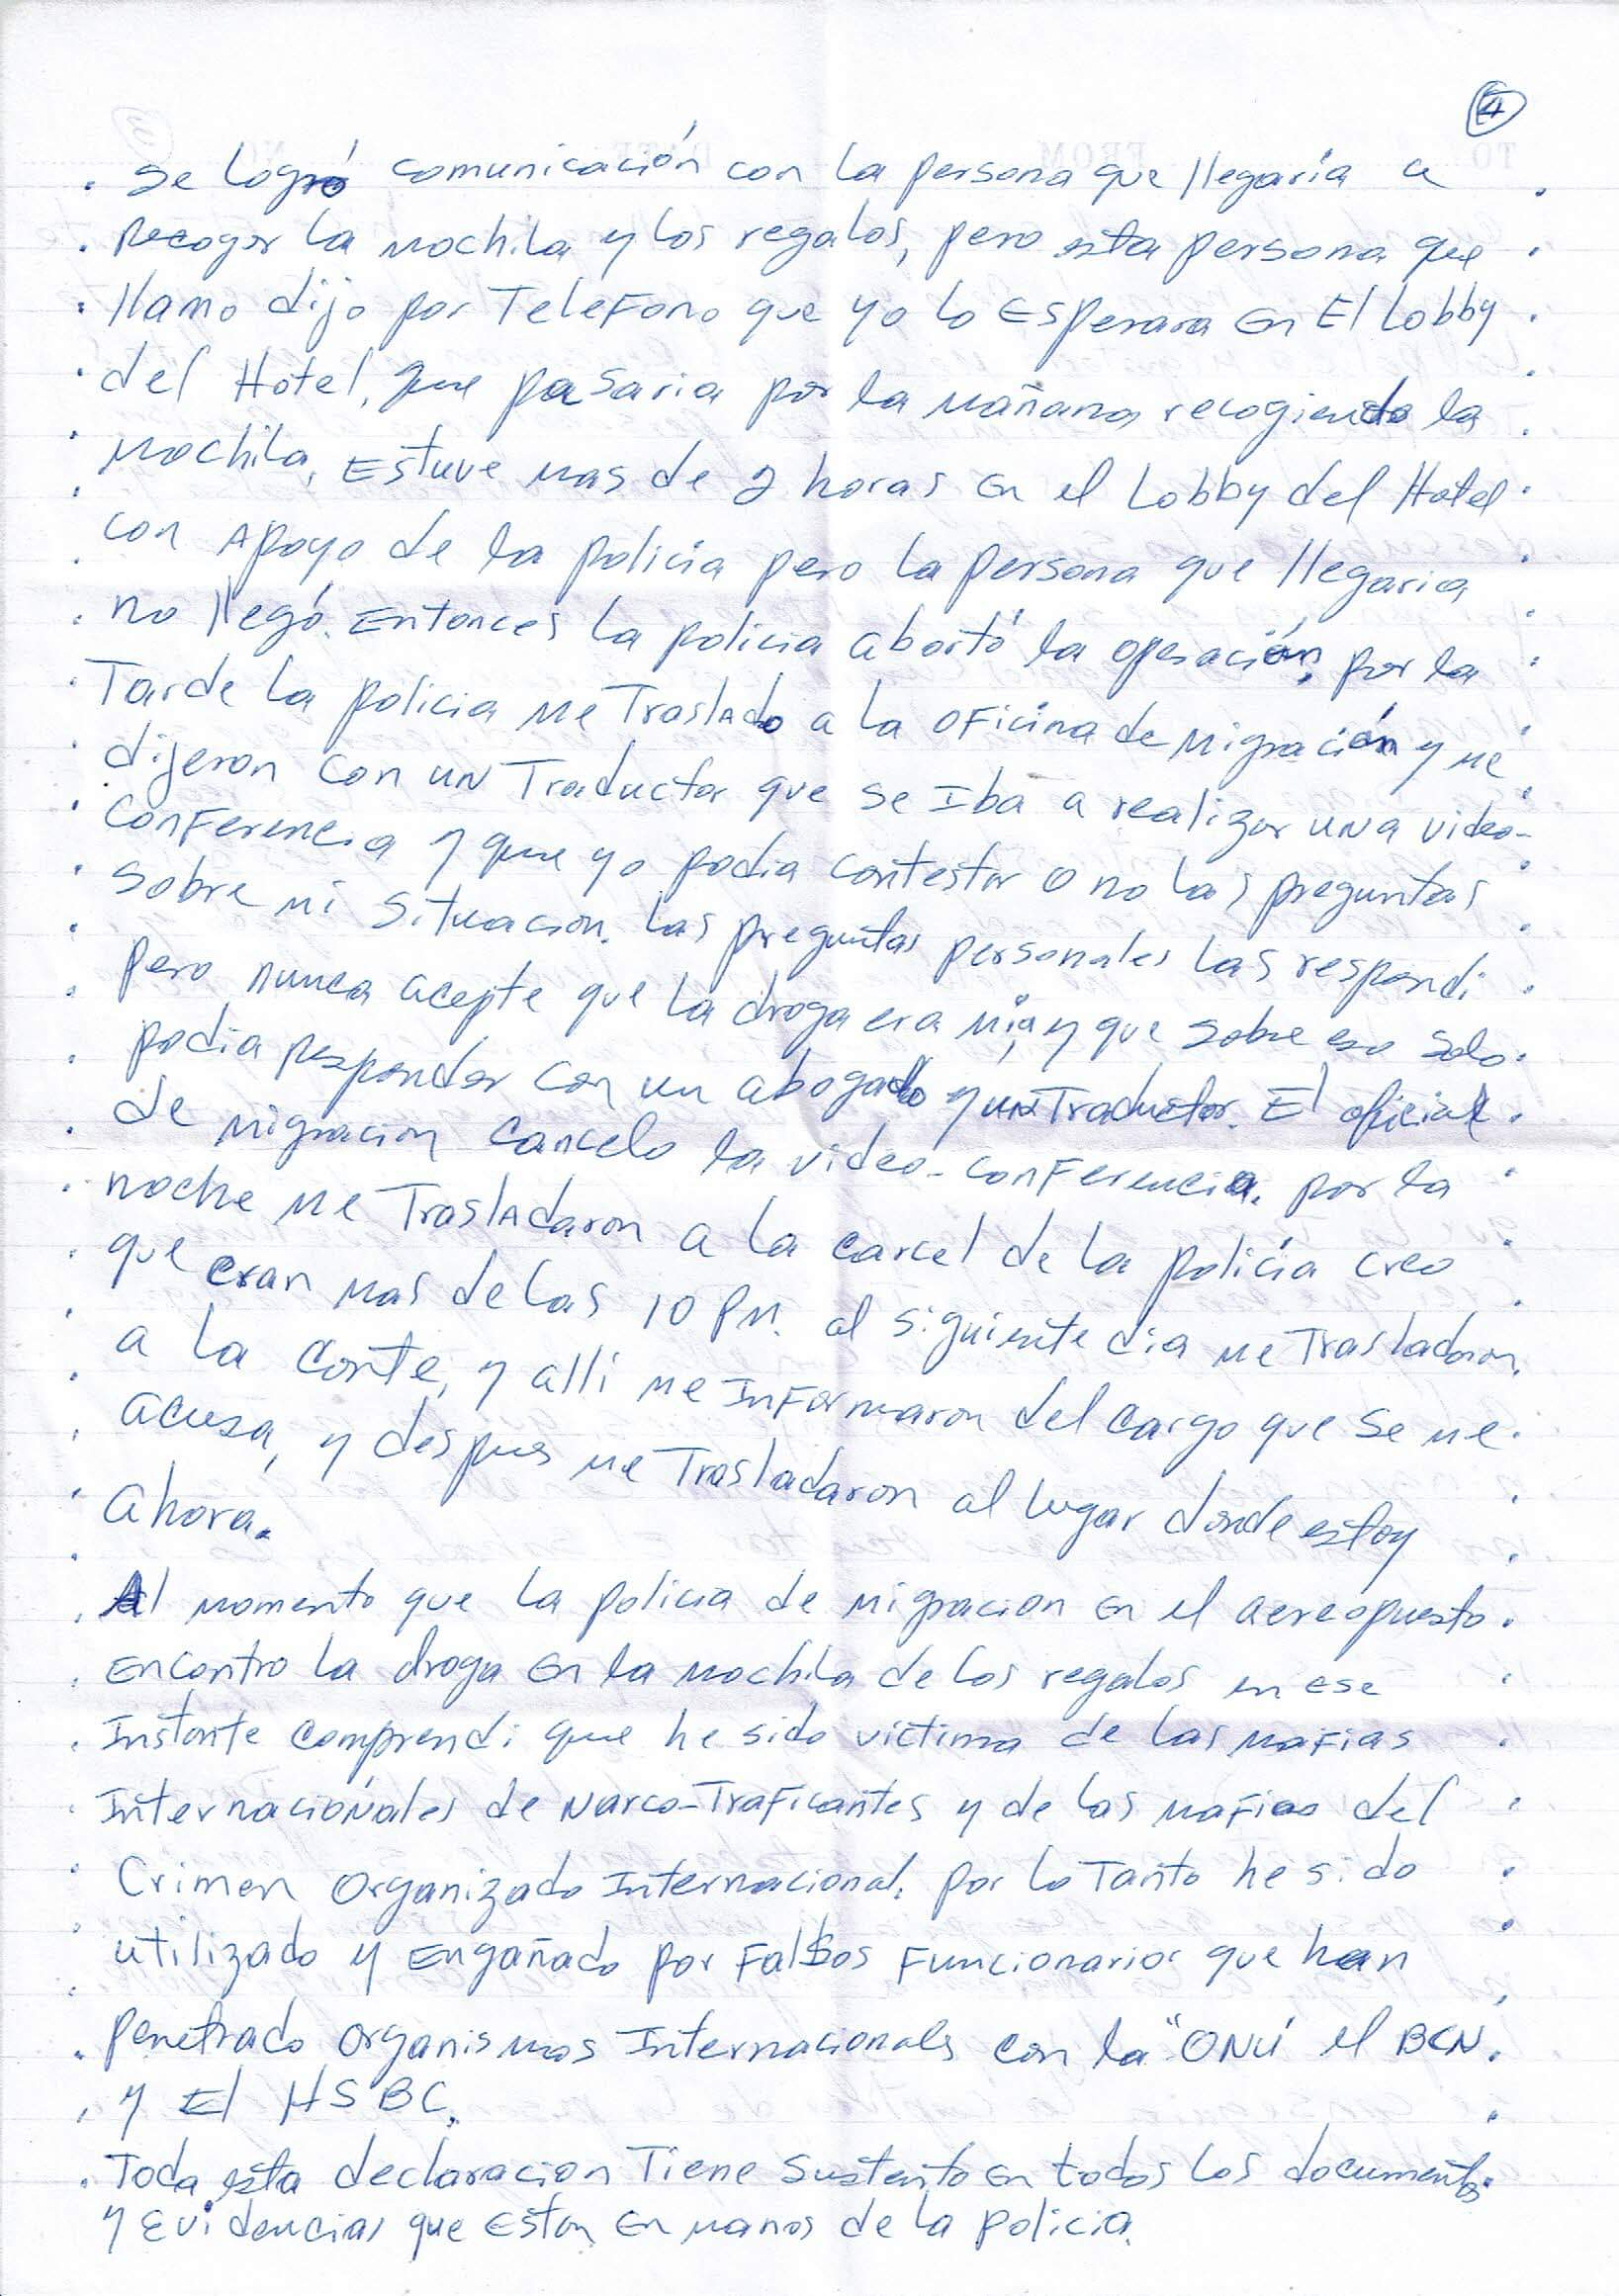 4
Se logró comunicación con la persona que llegaría a
recoger la mochila y los regalos, pero esta persona que
llamo dijo por Telefono que yo lo Esperara En El Lobby
del Hotel, que pasaria por la mañana recogiendo la
mochila, Estuve mas de 2 horas En el Lobby del Hotel
con Apoyo de la policía pero la persona que llegaria
no llegó. Entonces la policia abortó la operación, por la
Tarde la policia me Traslado a la oficina de Migración y me
dijeron con un Traductor que se Iba a realizar una video-
Conferencia y que yo podia contestar o no las preguntas
Sobre mi Situacion. Las preguntas personales las respondi
pero nunca acepte que la droga era mia y que sobre eso solo
podia responder con un abogado y un Traductor. El oficial
de migracion cancelo la video-conferencia. por la
noche me Trasladaron a la carcel de la policía creo
que eran mas de las 10 PM. al siguiente dia me Trasladaron
a la corte, y alli me Informaron del cargo que se me
acusa, y despues me Trasladaron al lugar donde estoy
ahora.
Al momento que la policia de migracion en el aereopuesto
Encontro la droga En la mochila de los regalos en ese
Instante comprendi que he sido victima de las mafias
Internaciónales de Narco-Traficantes y de las mafias del
Crimen Organizado Internacional. por lo Tanto he sido
utilizado y Engañado por Falsos Funcionarios que han
penetrado organismos Internacionals con la "ONU el BCN
y El HSBC.
Toda esta declaracion Tiene sustento en todos los documentos
y Evidencias que Estan En manos de la policia.